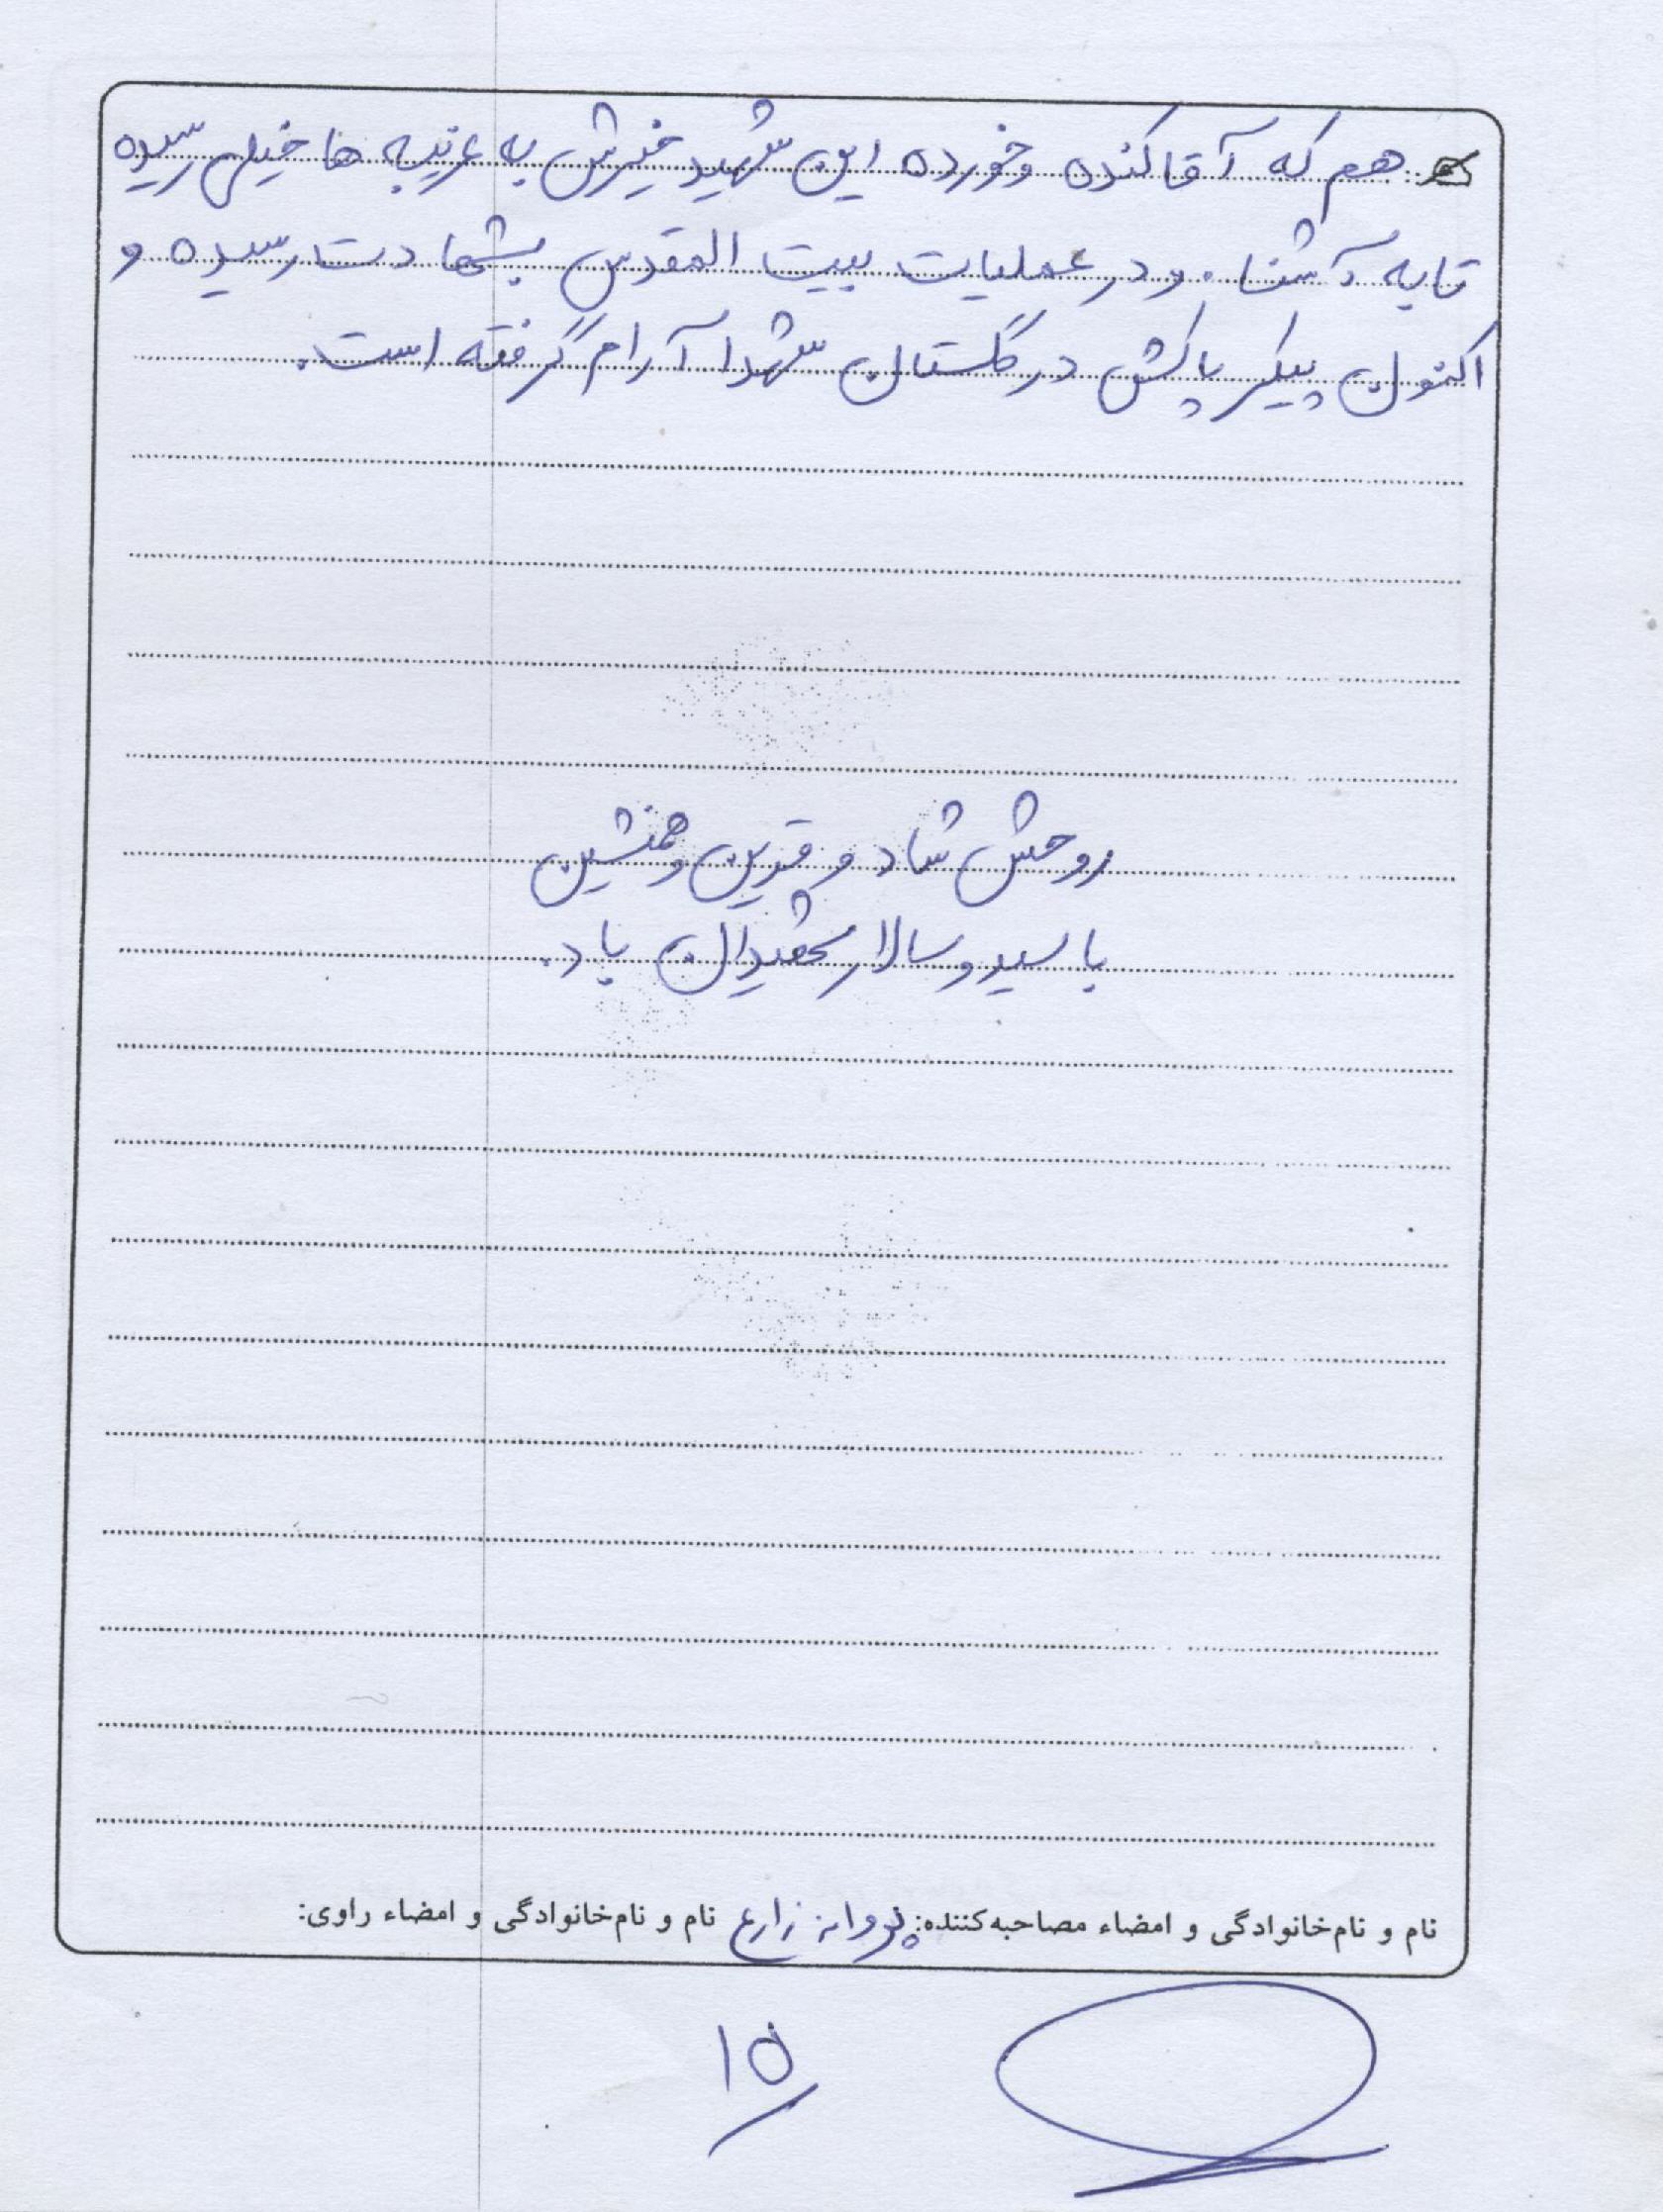 هم که آقا کننده و خورده این شهید خیرش به غریبه ها خیلی رسیده
تا به آشنا. و در عملیات بیت المقدس بشهادت رسیده و
اکنون پیکر پاکش در گلستان شهدا آرام گرفته است.
روحش شاد و قرین و همنشین
با سید و سالار شهیدان باد.
نام و نام‌خانوادگی و امضاء مصاحبه‌کننده: پروانه زارع نام و نام‌خانوادگی و امضاء راوی:
۱۵